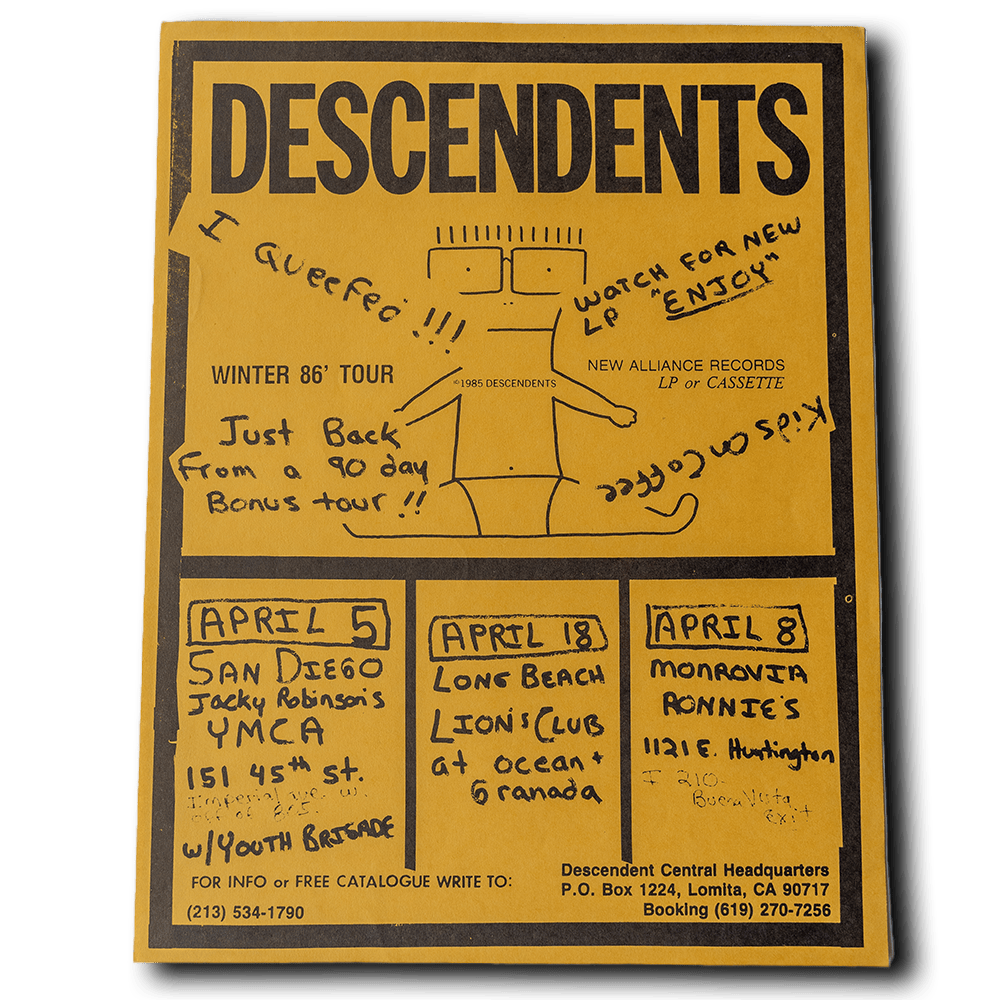 DESCENDENTS
I Queefed !!!
WATCH FOR NEW
LP "ENJOY"
WINTER 86' TOUR
NEW ALLIANCE RECORDS
LP or CASSETTE
©1985 DESCENDENTS
Just Back
From a 90 day
Bonus tour !!
Kids on Coffee
APRIL 5
SAN DIEGO
Jacky Robinson's
YMCA
151 45th St.
Imperial ave. w.
off of 805
w/YOUTH BRIGADE
APRIL 18
LONG BEACH
LION'S CLUB
at ocean +
Granada
APRIL 8
MONROVIA
RONNIE'S
1121 E. Huntington
I 210-
Buena Vista
Exit
FOR INFO or FREE CATALOGUE WRITE TO:
(213) 534-1790
Descendent Central Headquarters
P.O. Box 1224, Lomita, CA 90717
Booking (619) 270-7256